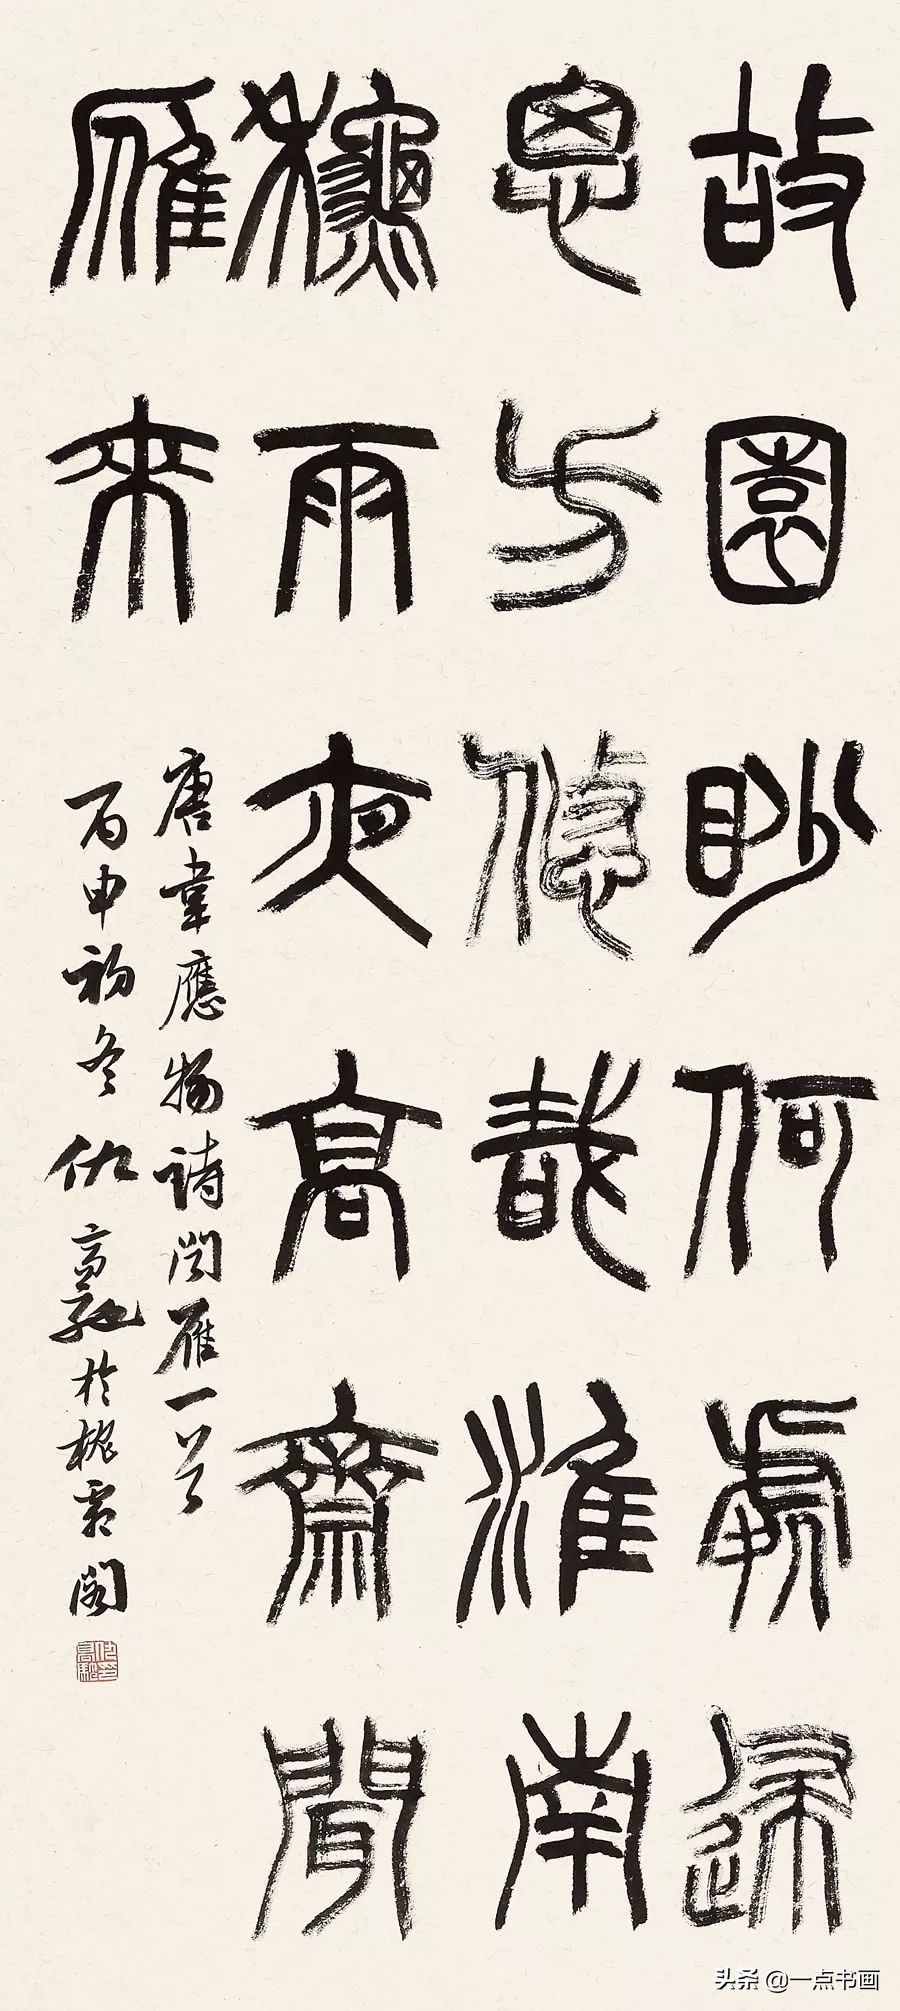 故園眇何處歸
思方悠哉淮南
秋雨夜高齋聞
雁來
唐韋應物詩聞雁一首
丙申初冬仇高馳於槐閣
头条 @一点书画